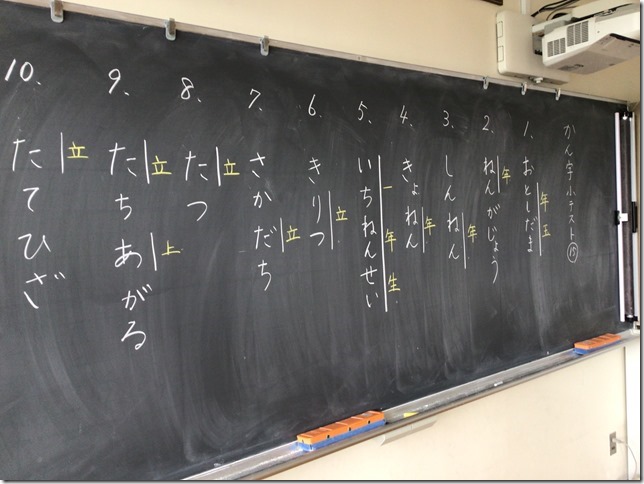 かん字小テスト⑮
1、おとしだま
年玉
2、ねんがじょう
年
3、しんねん
年
4、きょねん
年
5、いちねんせい
一年生
6、きりつ
立
7、さかだち
立
8、たつ
立
9、たちあがる
立上
10、たてひざ
立